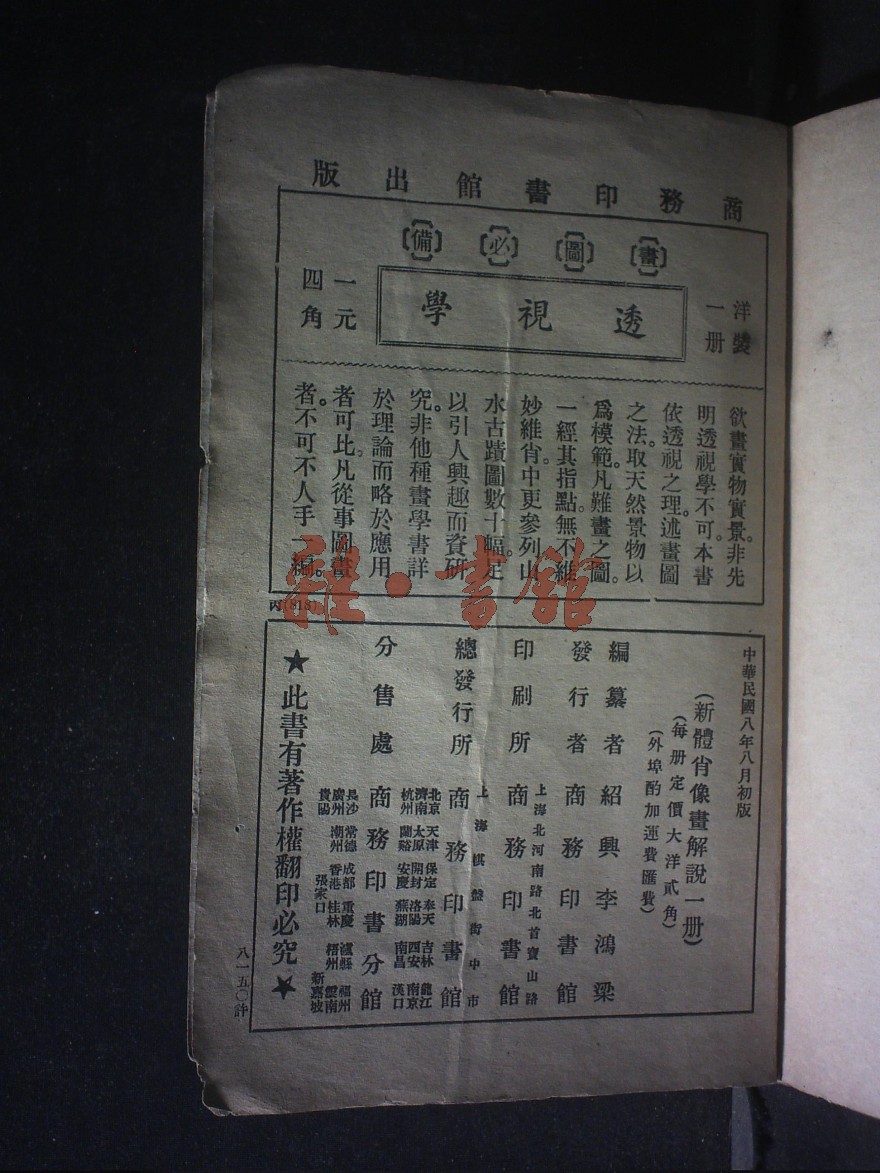 商務印書館出版
畫圖必備
洋裝
一册
透視學
一元
四角
欲畫實物實景。非先
明透視學不可。本書
依透視之理。述畫圖
之法。取天然景物以
爲模範。凡難畫之圖。
一經其指點。無不維
妙維肖。中更參列山
水古蹟圖數十幅。足
以引人興趣而資研
究。非他種畫學書詳
於理論而略於應用
者可比。凡從事圖畫
者。不可不人手一編。
丙(818)
中華民國八年八月初版
(新體肖像畫解說一册)
(每册定價大洋貳角)
(外埠酌加運費匯費)
編纂者 紹興李鴻梁
發行者 商務印書館
上海北河南路北首寶山路
印刷所 商務印書館
上海棋盤街中市
總發行所 商務印書館
北京 天津 保定 奉天 吉林 龍江
濟南 太原 開封 洛陽 西安 南京
杭州 蘭谿 安慶 蕪湖 南昌 漢口
分售處 商務印書分館
長沙 常德 成都 重慶 瀘縣 福州
廣州 潮州 香港 桂林 梧州 雲南
貴陽 張家口 新嘉坡
★此書有著作權翻印必究★
八一五〇計
雅·書館